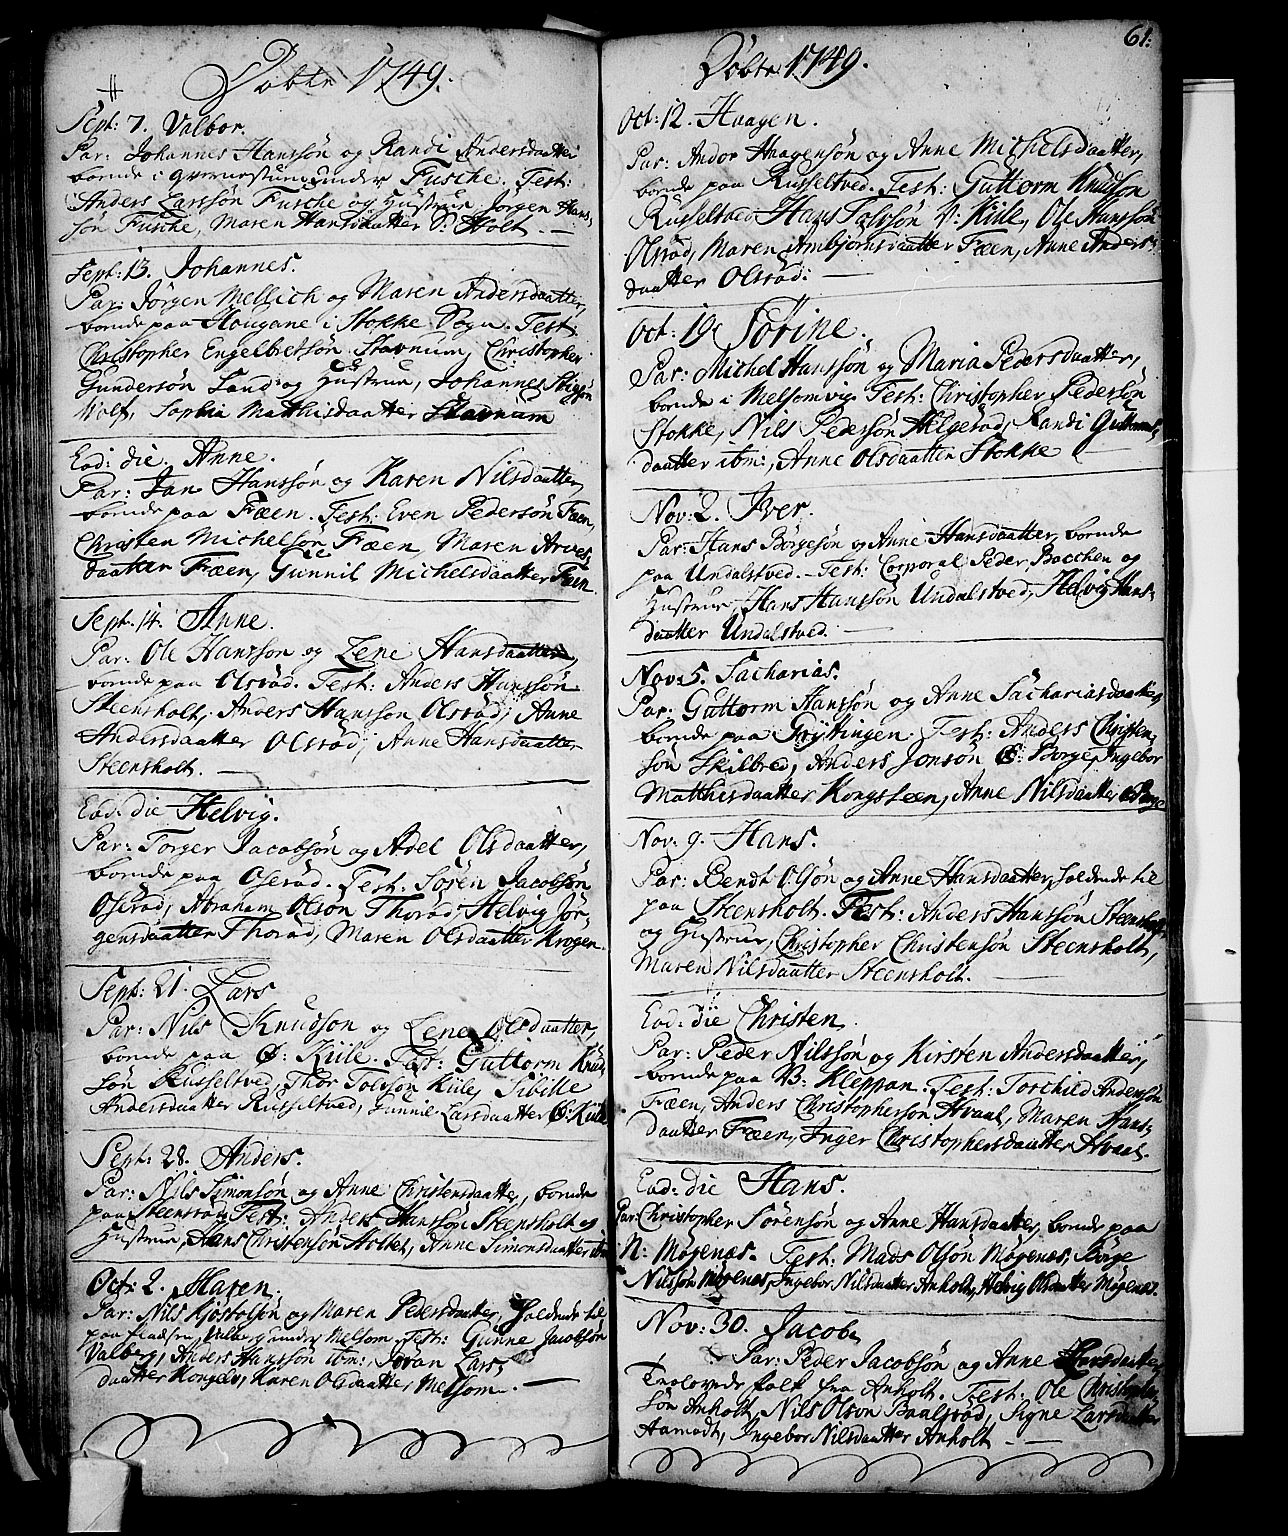 Døbte 1749.
Sept: 7. Valbor.
Par: Johannes Hanssøn og Randi Andersdaatter
boende i under Fusche. Test:
Anders Larssøn Fusche og Hustrue. Jørgen Hans,
søn Fusche, Maren Hansdaatter S: Holt. —
Sept: 13. Johannes.
Par: Jørgen Mellich og Maren Andersdaatter,
boende paa Hougane i Stokke Sogn. Test:
Christopher Engelbretsøn Stavnum, Christopher
Gundersøn Sand og Hustrue, Johannes
Wolf, Sophia Matthisdaatter Stavnum
Eod: die. Anne.
Par: Jan Hanssøn og Karen Nilsdaatter,
boende paa Fæen. Test: Even Pedersøn Fæen,
Christen Michelsøn Fæen, Maren Arves,
daatter Fæen, Gunnil Michelsdaatter Fæen
Sept. 14. Anne.
Par: Ole Hanssøn og Lene Hansdaatter,
boende paa Olsrød. Test: Anders Hanssøn
Skeensholt, Anders Hanssøn Olsrød, Anne
Andersdaatter Olsrød, Anne Hansdaatter
Steensholt. —
Eod: die Helvig.
Par: Torger Jacobsøn og Adel Olsdaatter,
boende paa Oserød. Test. Søren Jacobsøn
Oserød, Abraham Olsøn Thorød, Helvig Jør-
gensdaatter Thorød, Maren Olsdaatter Krogen.
Sept: 21. Lars
Par: Nils Knudsøn og Lene Olsdaatter,
boende paa Ø: Kiile. Test: Guttorm Knud,
søn Russeltved, Thor Tolvsøn Kiile, Sibille
Andersdaatter Russeltved, Gunnil Larsdaatter Ø: Kiile
Sept: 28. Anders.
Par: Nils Simonsøn og Anne Christensdaatter, boende
paa Steensrød, Test: Anders Hanssøn Skeensholt og
Hustrue, Hans Christensøn Holtet, Anne Simonsdaatter ibm
Oct: 2. Maren.
Par: Nils Kjøstolsøn og Maren Pedersdaatter, holdende til
paa pladsen under Melsom. Test: Gunne Jacobsøn
Valberg, Anders Hanssøn ibm:, Joran Lars,
daatter Kongelv, Karen Olsdaatter Melsom. —
61.
Døbte 1749.
Oct: 12. Haagen.
Par: Andor Haagensøn og Anne Michelsdaatter,
boende paa Russeltved. Test: Guttorm Knudsøn
Russeltved Hans Tolvsøn V: Kiile, Ole Hanssøn
Olsrød, Maren Ambjørnsdaatter Fæen, Anne Anders-
daatter Olsrød: —
Oct: 19. Sørine.
Par: Michel Hanssøn og Maria Pedersdaatter,
boende i Melsomvig. Test: Christopher Pedersøn
Stokke, Nils Pedersøn Helgerød, Randi Guttorms,
daatter ibm:, Anne Olsdaatter Stokke —
Nov: 2. Iver.
Par: Hans Børgesøn og Anne Hansdaatter, boende
paa Undalstved. — Test: Corporal Peder Bacchen og
Hustrue, Hans Hanssøn Undalstved, Helvig Hans-
daatter Undalstved. —
Nov: 5. Sacharias.
Par: Guttorm Hanssøn og Anne Sachariasdaatter
boende paa Grÿttingen. Test: Anders Christen,
søn Skilbred, Anders Jonsøn Ø: Borge, Ingebor
Matthisdaatter Kongsteen, Anne Nilsdaatter Ø: Borge
Nov: 9. Hans.
Par: Bendt Olsøn og Anne Hansdaatter, holdende til
paa Steensholt. Test: Anders Hanssøn Steensholt
og Hustrue, Christopher Christensøn Steensholt,
Maren Nilsdaatter Steensholt. —
Eod: die Christen.
Par: Peder Nilssøn og Kirsten Andersdaatter,
boende paa V: Kleppan. Test: Torchild Andersøn
Fæen, Anders Christophersøn Hvaal, Maren Hans-
daatter Fæen, Inger Christophersdaatter Hvaal.
Eod: die Hans.
Par: Christopher Sørensøn og Anne Hansdaatter, boende paa
N: Møgenæs. Test: Mads Olsøn Møgenæs, Børge
Nilssøn Møgenæs, Ingebor Nilsdaatter Anholt, Helvig Olsdaatter Møgenæs.
Nov: 30. Jacob.
Par: Peder Jacobsøn og Anne Larsdaatter
Trolovede folk fra Anholt. Test: Ole Christopher,
søn Anholt, Nils Olsøn Baalsrød, Signe Larsdaatter
Aamodt, Ingebor Nilsdaatter Anholt — —